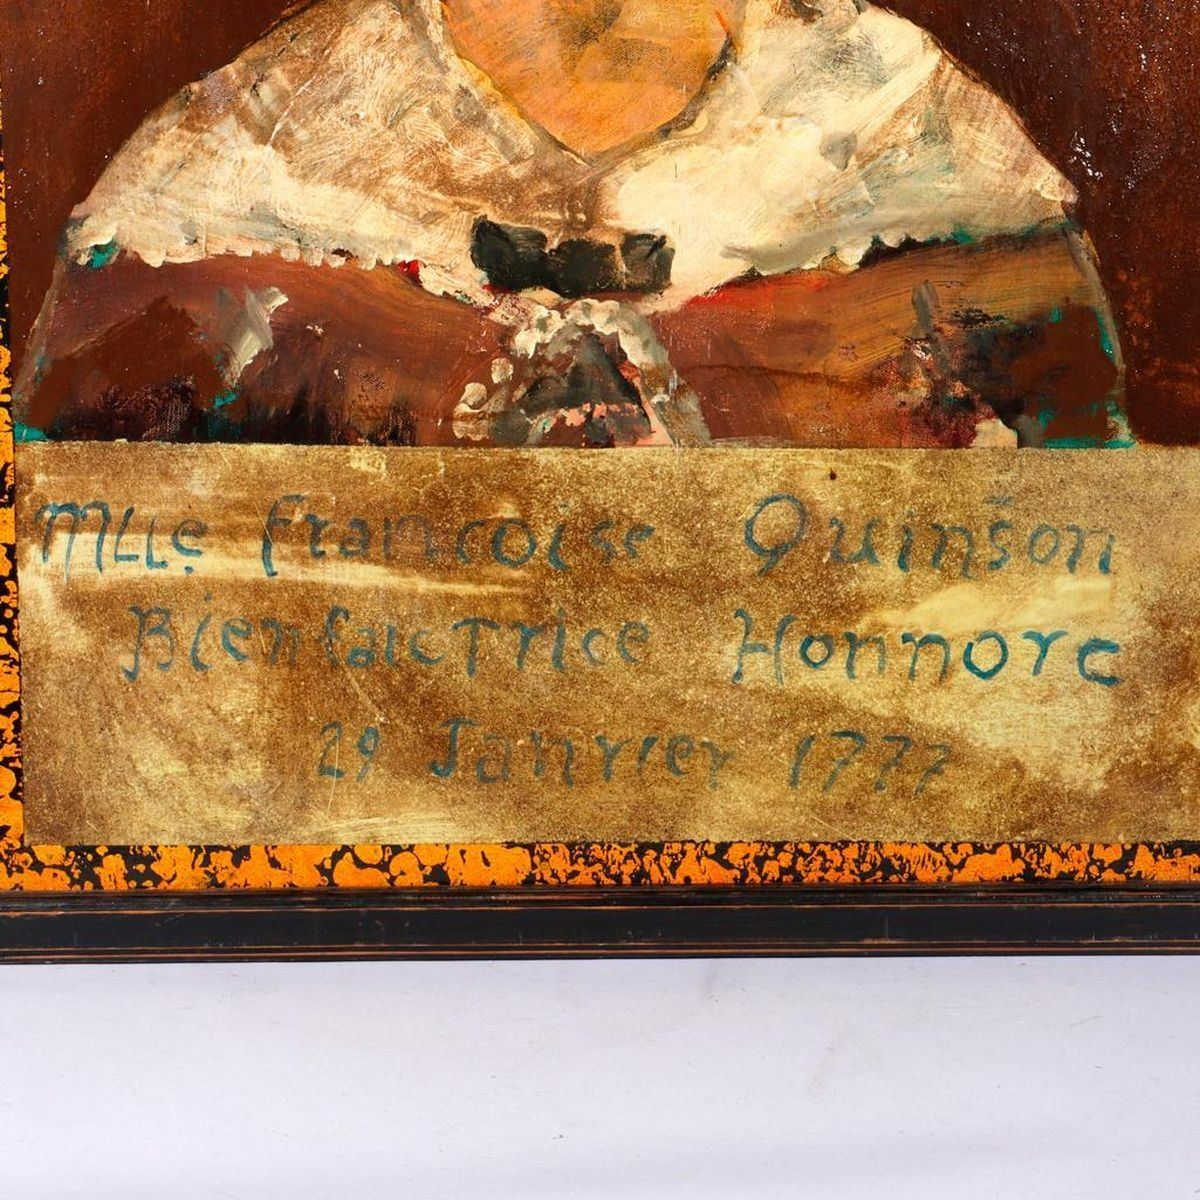 MLLe francoise Quinson
Bienfaictrice Honnore
29 Janvier 1777